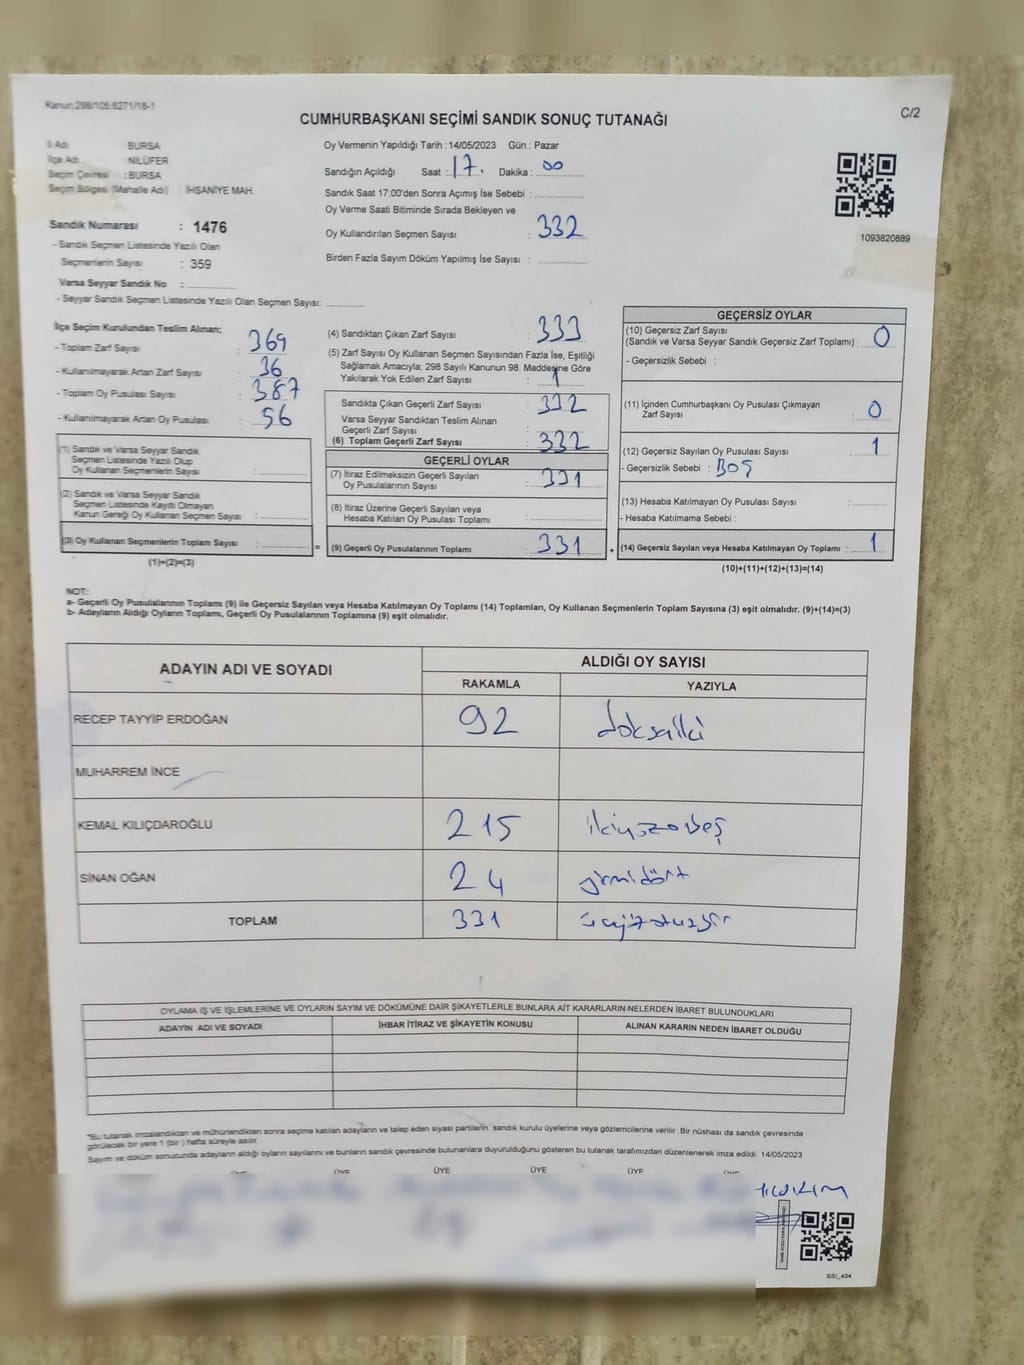 Kanun:298/105;6271/18-1
C/2
CUMHURBAŞKANI SEÇİMİ SANDIK SONUÇ TUTANAĞI
İl Adı : BURSA
İlçe Adı : NİLÜFER
Seçim Çevresi : BURSA
Seçim Bölgesi (Mahalle Adı) : İHSANİYE MAH.
Sandık Numarası : 1476
- Sandık Seçmen Listesinde Yazılı Olan
Seçmenlerin Sayısı : 359
Varsa Seyyar Sandık No :
- Seyyar Sandık Seçmen Listesinde Yazılı Olan Seçmen Sayısı:
Oy Vermenin Yapıldığı Tarih :14/05/2023 Gün : Pazar
Sandığın Açıldığı Saat : 17. Dakika : 00
Sandık Saat 17:00'den Sonra Açımış İse Sebebi :
Oy Verme Saati Bitiminde Sırada Bekleyen ve
Oy Kullandırılan Seçmen Sayısı : 332
Birden Fazla Sayım Döküm Yapılmış İse Sayısı :
1093820889
İlçe Seçim Kurulundan Teslim Alınan;
- Toplam Zarf Sayısı : 369
- Kullanılmayarak Artan Zarf Sayısı : 36
- Toplam Oy Pusulası Sayısı : 387
- Kullanılmayarak Artan Oy Pusulası : 56
(1) Sandık ve Varsa Seyyar Sandık
Seçmen Listesinde Yazılı Olup
Oy Kullanan Seçmenlerin Sayısı :
(2) Sandık ve Varsa Seyyar Sandık
Seçmen Listesinde Kayıtlı Olmayan
Kanun Gereği Oy Kullanan Seçmen Sayısı :
(3) Oy Kullanan Seçmenlerin Toplam Sayısı :
(1)+(2)=(3)
(4) Sandıktan Çıkan Zarf Sayısı : 333
(5) Zarf Sayısı Oy Kullanan Seçmen Sayısından Fazla İse, Eşitliği
Sağlamak Amacıyla; 298 Sayılı Kanunun 98. Maddesine Göre
Yakılarak Yok Edilen Zarf Sayısı : 1
Sandıkta Çıkan Geçerli Zarf Sayısı : 332
Varsa Seyyar Sandıktan Teslim Alınan
Geçerli Zarf Sayısı :
(6) Toplam Geçerli Zarf Sayısı : 332
GEÇERLİ OYLAR
(7) İtiraz Edilmeksizin Geçerli Sayılan
Oy Pusulalarının Sayısı : 331
(8) İtiraz Üzerine Geçerli Sayılan veya
Hesaba Katılan Oy Pusulası Toplamı :
= (9) Geçerli Oy Pusulalarının Toplamı : 331 +
GEÇERSİZ OYLAR
(10) Geçersiz Zarf Sayısı
(Sandık ve Varsa Seyyar Sandık Geçersiz Zarf Toplamı) : 0
- Geçersizlik Sebebi :
(11) İçinden Cumhurbaşkanı Oy Pusulası Çıkmayan
Zarf Sayısı : 0
(12) Geçersiz Sayılan Oy Pusulası Sayısı : 1
- Geçersizlik Sebebi : BOŞ
(13) Hesaba Katılmayan Oy Pusulası Sayısı :
- Hesaba Katılmama Sebebi :
(14) Geçersiz Sayılan veya Hesaba Katılmayan Oy Toplamı : 1
(10)+(11)+(12)+(13)=(14)
NOT:
a- Geçerli Oy Pusulalarının Toplamı (9) ile Geçersiz Sayılan veya Hesaba Katılmayan Oy Toplamı (14) Toplamları, Oy Kullanan Seçmenlerin Toplam Sayısına (3) eşit olmalıdır. (9)+(14)=(3)
b- Adayların Aldığı Oyların Toplamı, Geçerli Oy Pusulalarının Toplamına (9) eşit olmalıdır.
ADAYIN ADI VE SOYADI
ALDIĞI OY SAYISI
RAKAMLA YAZIYLA
RECEP TAYYİP ERDOĞAN 92 doksaniki
MUHARREM İNCE
KEMAL KILIÇDAROĞLU 215 ikiyüzonbeş
SİNAN OĞAN 24 yirmidört
TOPLAM 331 üçyüzotuzbir
OYLAMA İŞ VE İŞLEMLERİNE VE OYLARIN SAYIM VE DÖKÜMÜNE DAİR ŞİKAYETLERLE BUNLARA AİT KARARLARIN NELERDEN İBARET BULUNDUKLARI
ADAYIN ADI VE SOYADI İHBAR İTİRAZ VE ŞİKAYETİN KONUSU ALINAN KARARIN NEDEN İBARET OLDUĞU
"Bu tutanak imzalandıktan ve mühürlendikten sonra seçime katılan adayların ve talep eden siyasi partilerin sandık kurulu üyelerine veya gözlemcilerine verilir .Bir nüshası da sandık çevresinde
görülecek bir yere 1 (bir ) hafta süreyle asılır.
Sayım ve döküm sonucunda adayların aldığı oyların sayılarını ve bunların sandık çevresinde bulunanlara duyurulduğunu gösteren bu tutanak tarafımızdan düzenlenerek imza edildi. 14/05/2023
ÜYE ÜYE ÜYE ÜYE ÜYE ÜYE
YILDIRIM
SSI_404